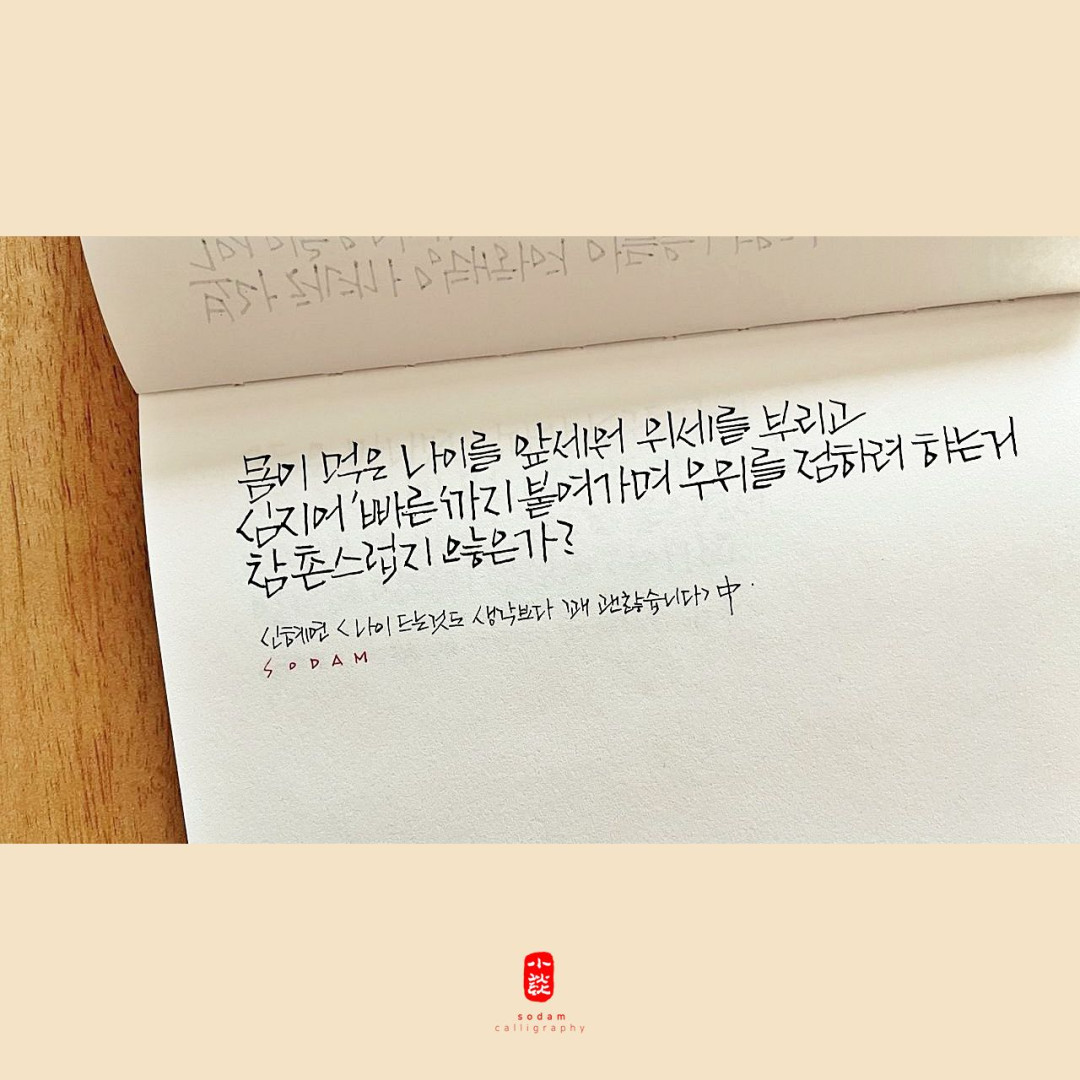 몸이 먹은 나이를 앞세워 위세를 부리고
심지어 '빠른'까지 붙여가며 우위를 점하려 하는거
참 촌스럽지 않은가?
신혜연 <나이 드는것도 생각보다 꽤 괜찮습니다> 中.
SODAM
小談
sodam
calligraphy